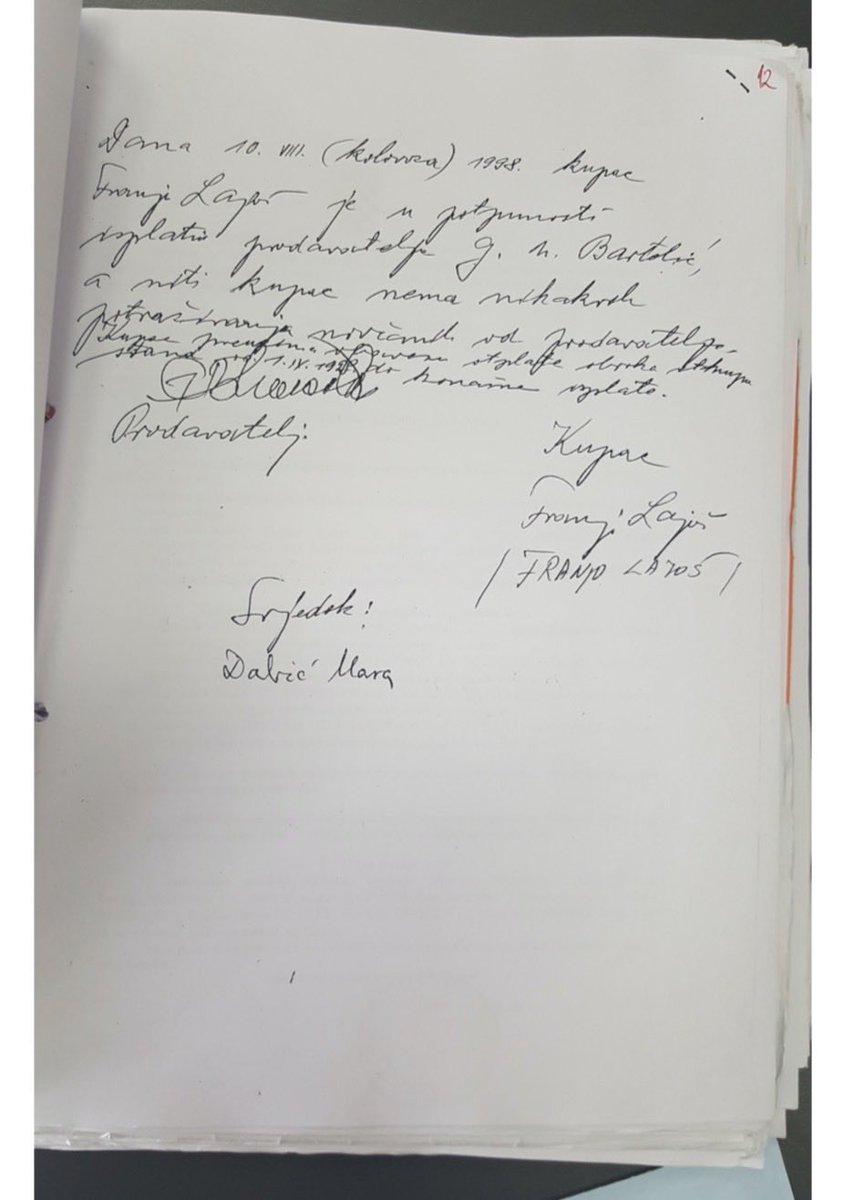 12
Dana 10. VIII. (kolovoza) 1998. kupac
Franjo Lajoš je u potpunosti
isplatio prodavatelja g. N. Bartolić,
a niti kupac nema nikakvih
potraživanja novčanih od prodavatelja.
Kupac preuzima obavezu otplate obroka otkupa
stana od 1. IX. 1998. do konačne isplate.
Prodavatelj:
Kupac
Franjo Lajoš
/ FRANJO LAJOŠ /
Svjedok:
Dabić Mara